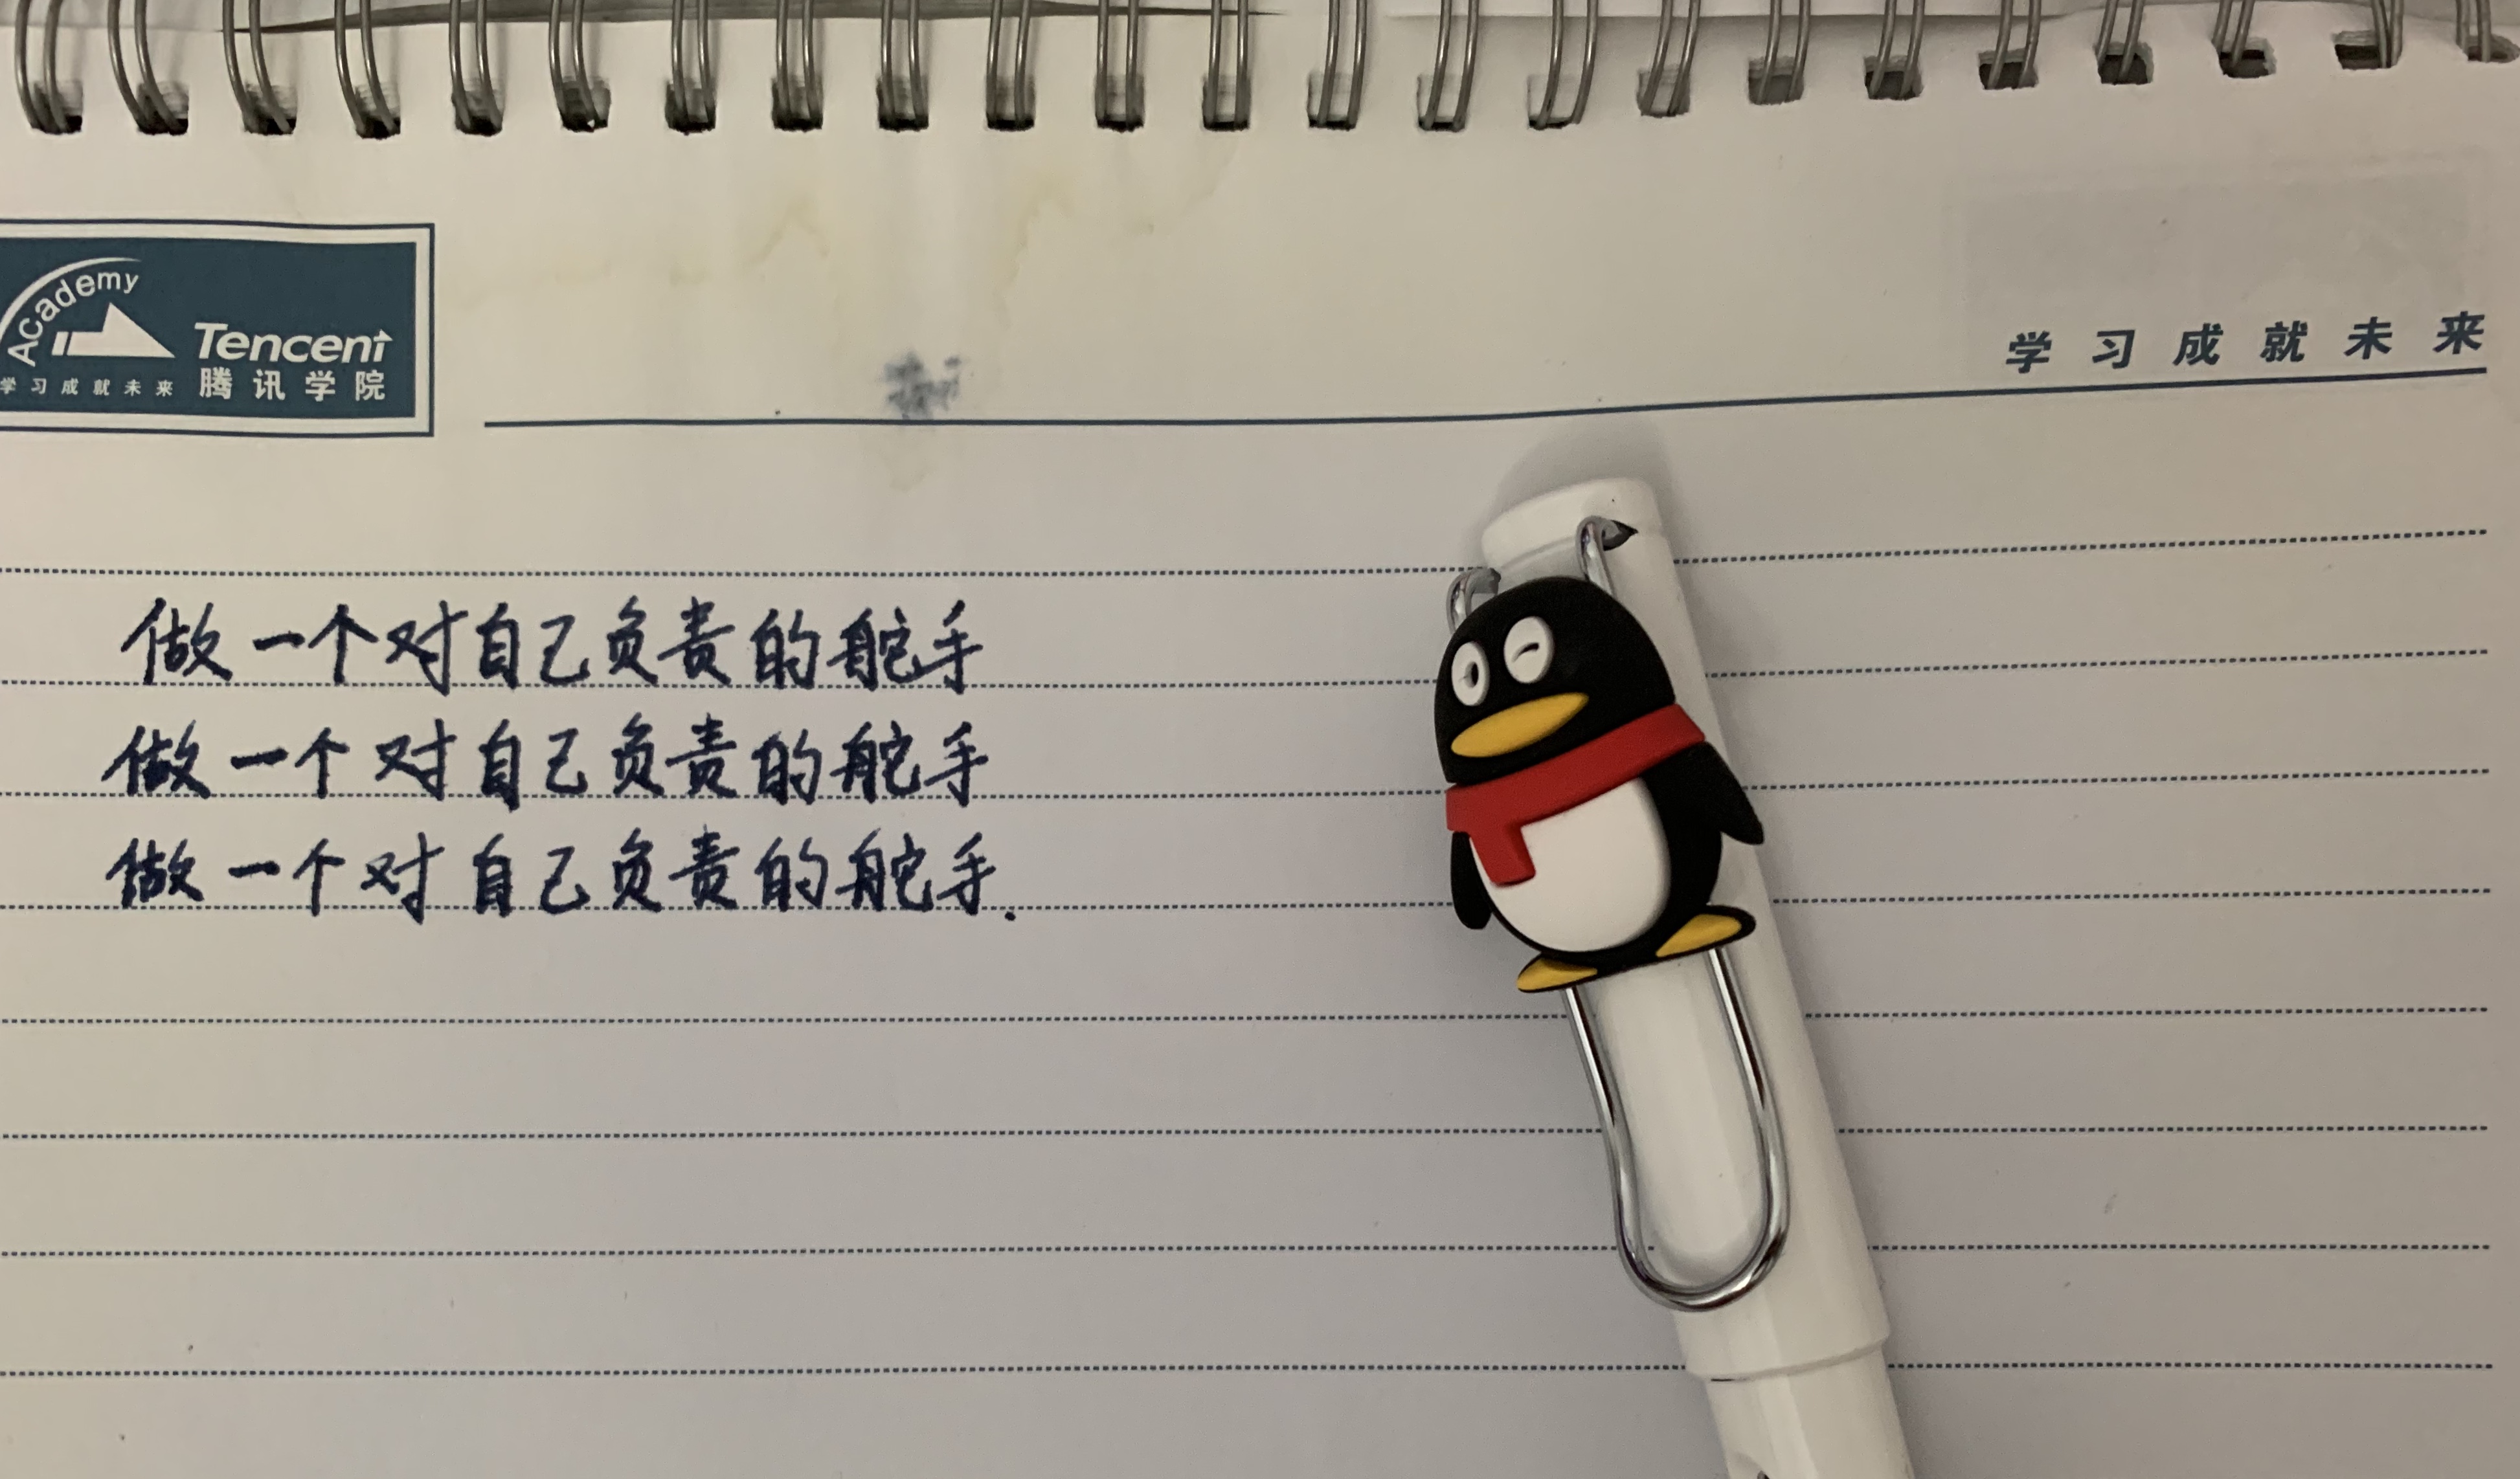 Academy
Tencent
学习成就未来 腾讯学院
学习成就未来
做一个对自己负责的舵手
做一个对自己负责的舵手
做一个对自己负责的舵手.